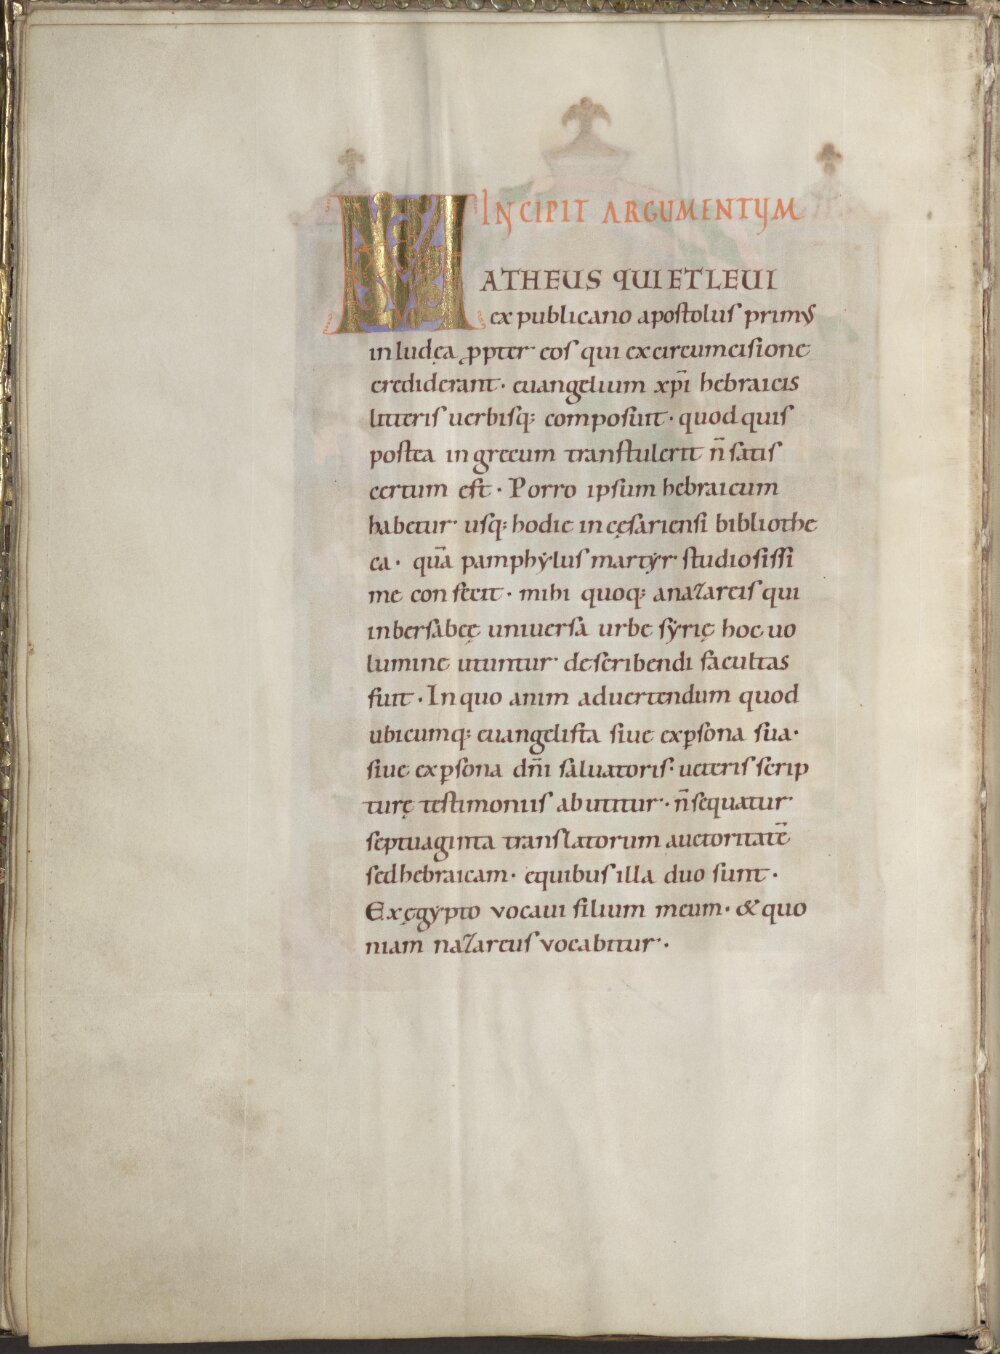 INCIPIT ARGUMENTUM
MATHEUS QUI ET LEUI
ex publicano apostolus primus
in Iudęa ꝓpter eos qui ex circumcisione
crediderant · euangelium xp̄i hebraicis
litteris uerbisq; composuit · quod quis
postea in grecum transtulerit n̄ satis
certum est · Porro ipsum hebraicum
habetur usq; hodie in cęsariensi bibliothe
ca · quā pamphẏlus martẏr studiosissi
me confecit · mihi quoq; a nazareis qui
in bersabeę uniuersa urbe sẏrię hoc uo
lumine utuntur describendi facultas
fuit · In quo anim aduertendum quod
ubicumq; euangelista siue ex ꝑsona sua ·
siue ex ꝑsona dn̄i saluatoris · ueteris scrip
turę testimoniis abutitur · n̄ sequatur
septuaginta translatorum auctoritatē
sed hebraicam · e quibus illa duo sunt ·
Ex ęgẏpto vocaui filium meum · & quo
niam nazareus vocabitur ·